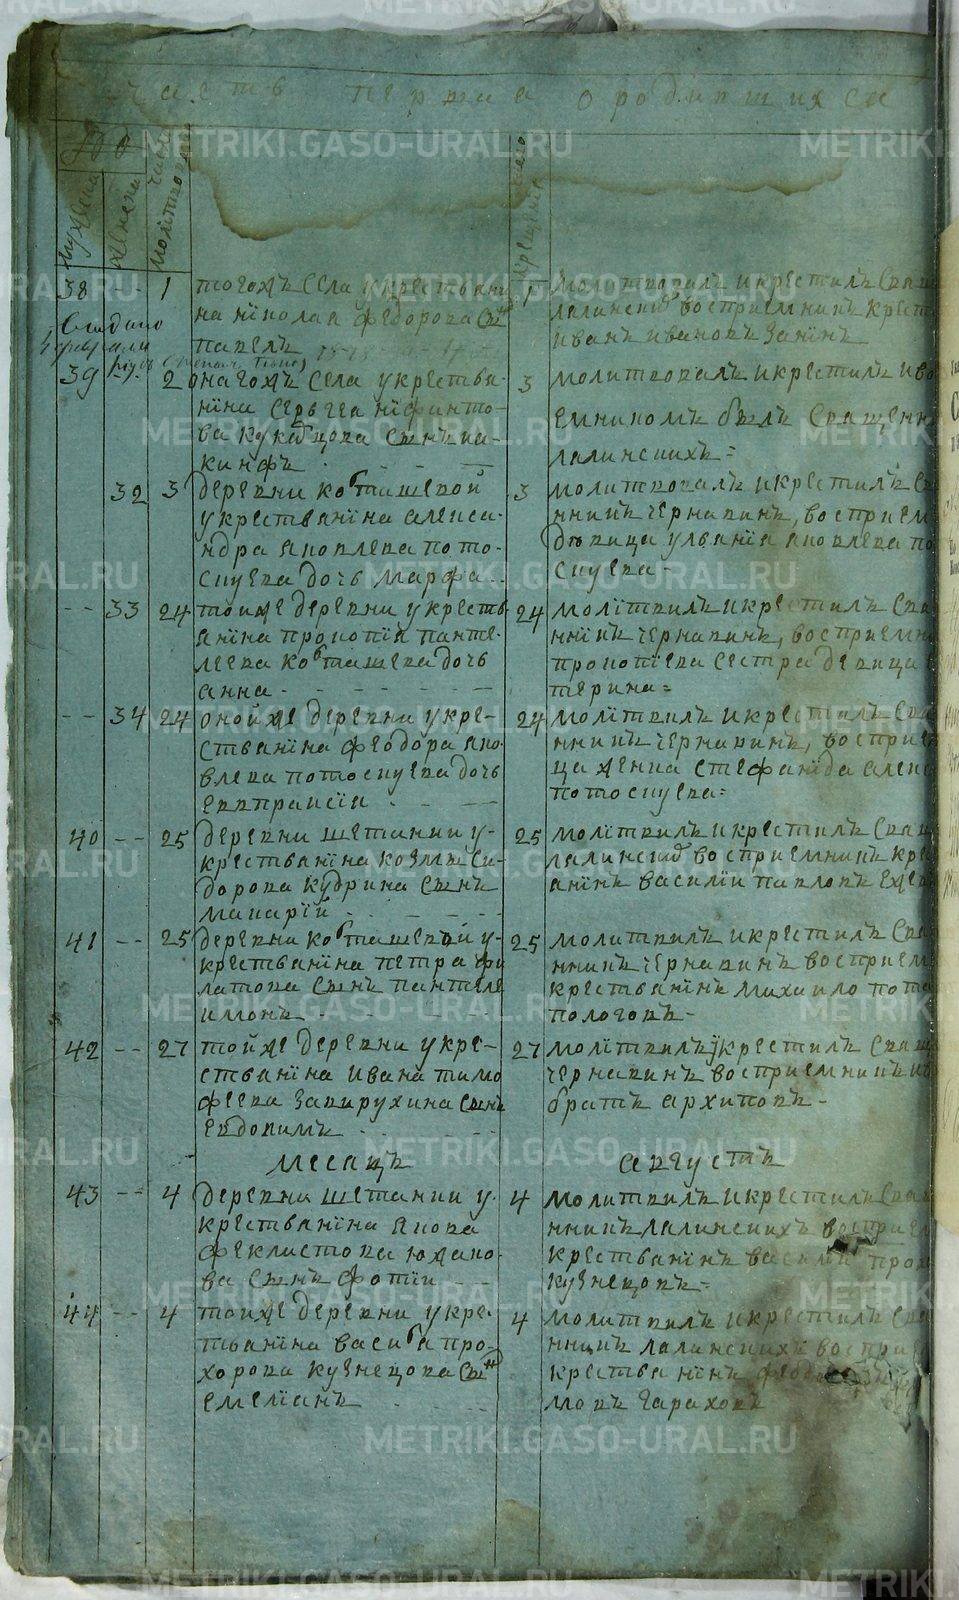 часть первая о родившихся
№
мужеска
женска
число
молитвы
крещения
38 -- 1 тогожъ села укрестьяни
на нїколая федорова сынъ
павелъ
1 молитвовалъ икрестилъ свящ
лалинской восприемникъ крест
иванъ ивановъ занїнъ
Выдано
39 -- 2 онагожъ села укрестья-
нїна сергѣя нїфанто-
ва сынъ иа-
кинфъ
3 молитвовалъ икрестилъ иво
емникомъ былъ священн
лалинскихъ =
32 3 деревни ковташевой
укрестьянїна алеѯа-
ндра яковлева пото-
скуева дочь марфа
3 молитвовалъ икрестилъ св
нникъ чернавинъ, восприем
дѣвица улванїя яковлева по
скуева -
-- 33 24 тойже деревни укресть
янїна прокопїя панте-
леева ковташева дочь
анна
24 молїтвилъ икрестилъ свя
нникъ чернавинъ, восприемн
прокопїева сестра девица
терина =
-- 34 24 онойже деревни укре-
стьянїна феодора яко
влева потоскуева дочь
евпраксїя
24 молїтвилъ икрестилъ свя
нникъ чернавинъ, восприе
ца женка стефанїда алекс
потоскуева =
40 -- 25 деревни шетанки у-
крестьянїна козмы си-
дорова кудрина сынъ
макарїй
25 молїтвилъ икрестилъ свящ
лалинской восприемникъ кре
янїнъ василїй павловъ ежев
41 -- 25 деревни ковташевой у-
крестьянїна петра фи
латова сынъ пантеле
имонъ
25 молитвилъ икрестилъ свя
нникъ чернавинъ восприем
крестьянїнъ михаило пота
пологовъ -
42 -- 27 тойже деревни укре-
стьянїна ивана тимо
феева завирухина сынъ
евдокимъ
27 молїтвилъ їкрестилъ свящ
чернавинъ восприемникъ ив
братъ архиповъ -
месяцъ августъ
43 -- 4 деревни шетанки у-
крестьянїна якова
феклистова южако-
ва сынъ фотїй
4 молитвилъ икрестилъ свя
нникъ лалинскихъ восприем
крестьянїнъ василїй прох
кузнецовъ =
44 -- 4 тойже деревни укре-
тьянїна василья про-
хорова кузнецова сын
емелїанъ
4 молитвилъ икрестилъ свя
нникъ лалинскихъ воспри
крестьянїнъ феод
мовъ гараховъ
METRIKI.GASO-URAL.RU